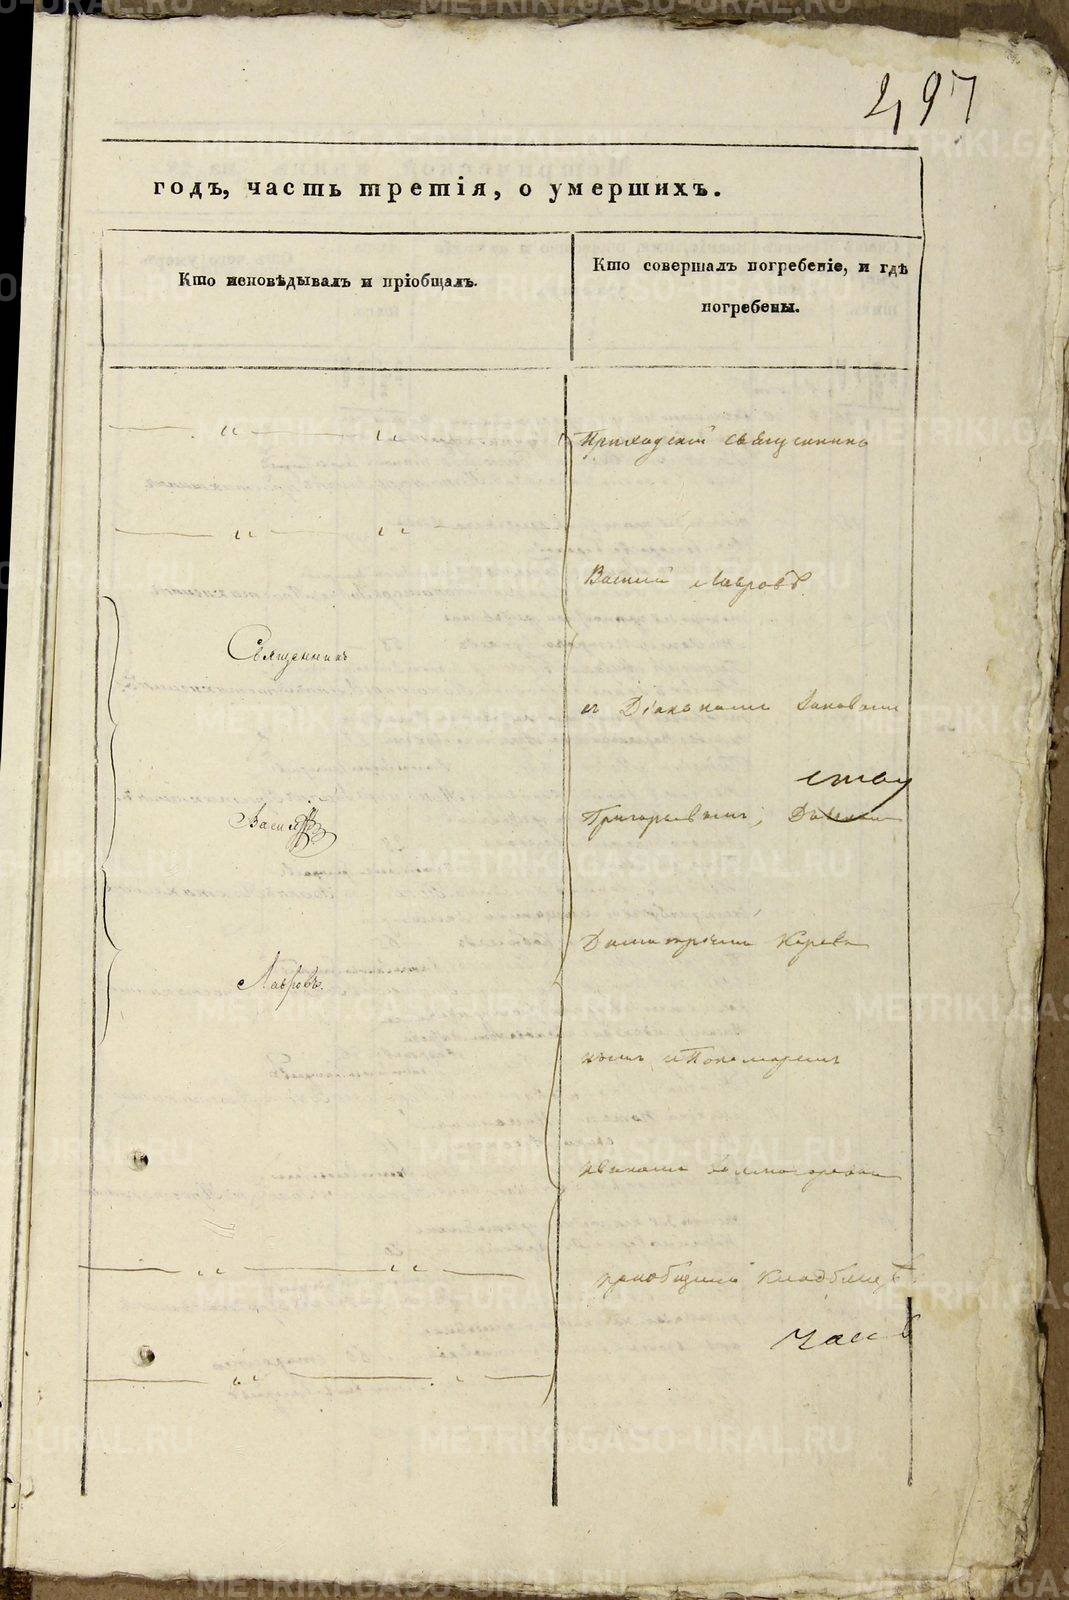 497
годъ, часть третія, о умершихъ.
Кто исповѣдывалъ и пріобщалъ.
Кто совершалъ погребеніе, и гдѣ
погребены.
Приходскій священникъ
Василій Лавровъ
Священникъ
съ Діакономъ
Василій
Григорьевымъ,
Димитріемъ
Лавровъ.
и Пономаремъ
Иваномъ
кладбищѣ
METRIKI.GASO-URAL.RU